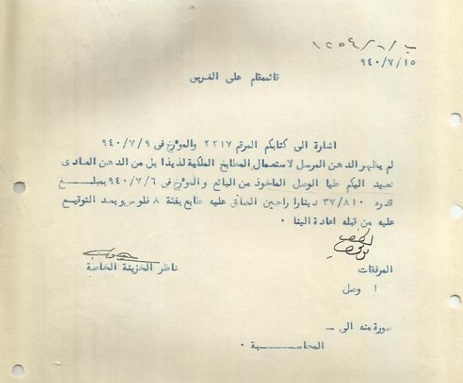 ٩٤٠/٧/١٥
قائممقام على الغربي
اشارة الى كتابكم المرقم ٢٢١٧ والمؤرخ فى ٩٤٠/٧/٩
لم يظهر الدهن المرسل لاستعمال المطابخ الملكية لذيذا بل من الدهن العادى
نعيد اليكم طيا الوصل الماخوذ من البائع والمؤرخ فى ٩٤٠/٧/٦ بمبلـــغ
قدره ٣٧/٨١٠ دينارا راجين الصاق عليه طابع بفئة ٨ فلوس وبعد التوقيع
عليه من قبله اعادة الينا ٠
ناظر الخزينة الخاصة
المرفقات
١ وصل
صورة منه الى ــ
المحاسبـــــــة ٠